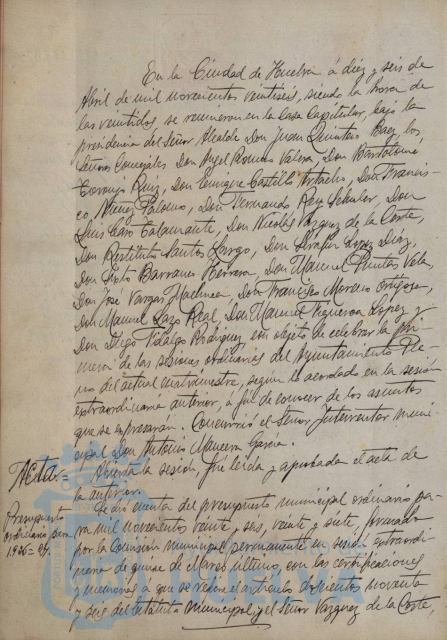 En la Ciudad de Huelva á diez y seis de
Abril de mil novecientos veintiseis, siendo la hora de
las veintidos se reunieron en la Casa Capitular, bajo la
presidencia del Señor Alcalde Don Juan Quintero Baez los
Señores Concejales Don Angel Romeu Valera, Don Bartolomé
Toronjo Ruiz, Don Castillo Don Francis-
co Núñez Palomo, Don Fernando Rey Don
Luis Caro Calamante, Don Nicolás Vazquez de la Corte,
Don Restituto Santos Don Serafin Lopez Diaz,
Don Sixto Barranco Herrera, Don Manuel Puntas Vela,
Don José Vargas Machuca, Don Francisco Moreno Ortigosa,
Don Manuel Lazo Real, Don Manuel Figueroa Lopez y
Don Diego Hidalgo Rodriguez, con objeto de celebrar la pri-
mera de las sesiones ordinarias del Ayuntamiento Ple-
no del actual cuatrimestre, según lo acordado en la sesión
extraordinaria anterior, á fin de conocer de los asuntos
que se expresaran. Concurrió el Señor Interventor muni-
cipal Don Antonio Garcia.
Acta= Abierta la sesión, fué leida y aprobada el acta de
la anterior.
Presupuesto
ordinario para
1926=27.
Se dió cuenta del presupuesto municipal ordinario pa-
ra mil novecientos veinte y seis, veinte y siete, formado
por la Comisión municipal permanente en sesión extraordi-
naria de quince de Marzo último, con las certificaciones
y memorias a que se refiere el artículo doscientos noventa
y seis del Estatuto Municipal, y el Señor Vazquez de la Corte,